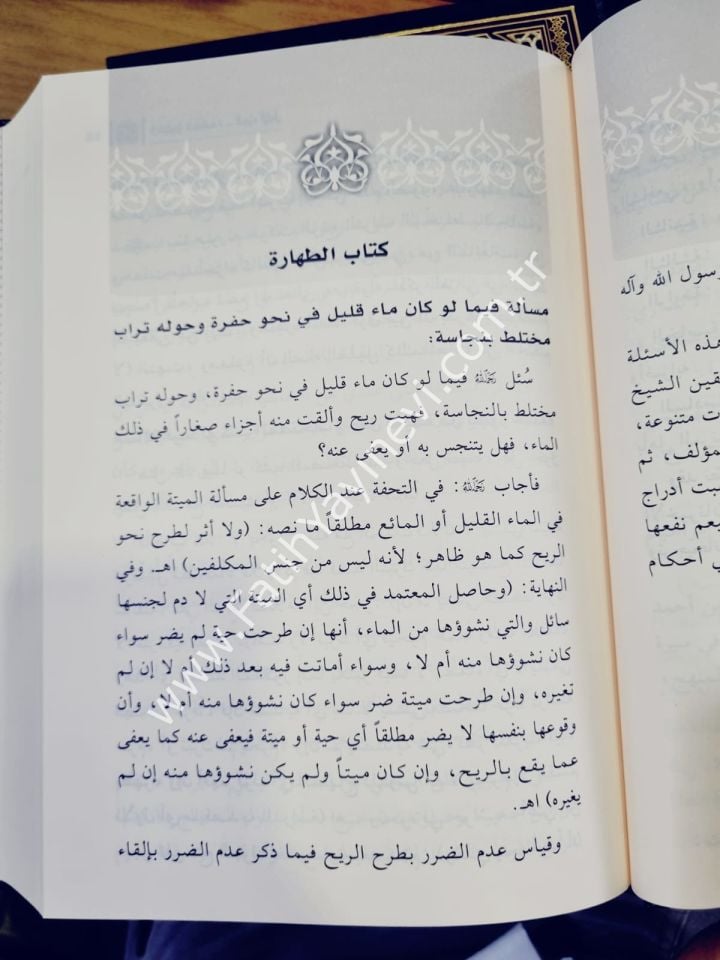 كتاب الطهارة
مسألة فيما لو كان ماء قليل في نحو حفرة وحوله تراب
مختلط بنجاسة:
سُئل رَحِمَهُ اللَّهُ فيما لو كان ماء قليل في نحو حفرة، وحوله تراب
مختلط بالنجاسة، فهبت ريح وألقت منه أجزاء صغاراً في ذلك
الماء، فهل يتنجس به أو يعفى عنه؟
فأجاب رَحِمَهُ اللَّهُ: في التحفة عند الكلام على مسألة الميتة الواقعة
في الماء القليل أو المائع مطلقاً ما نصه: (ولا أثر لطرح نحو
الريح كما هو ظاهر؛ لأنه ليس من جنس المكلفين) اهـ. وفي
النهاية: (وحاصل المعتمد في ذلك أي الميتة التي لا دم لجنسها
سائل والتي نشوؤها من الماء، أنها إن طرحت حية لم يضر سواء
كان نشوؤها منه أم لا، وسواء أماتت فيه بعد ذلك أم لا إن لم
تغيره، وإن طرحت ميتة ضر سواء كان نشوؤها منه أم لا، وأن
وقوعها بنفسها لا يضر مطلقاً أي حية أو ميتة فيعفى عنه كما يعفى
عما يقع بالريح، وإن كان ميتاً ولم يكن نشوؤها منه إن لم
يغيره) اهـ.
وقياس عدم الضرر بطرح الريح فيما ذكر عدم الضرر بإلقاء
رسول الله وآله
هذه الأسئلة
الشيخ
ت متنوعة،
مؤلف، ثم
أدراج
يعم نفعها
ي أحكام
www.FatihYayinevi.com.tr